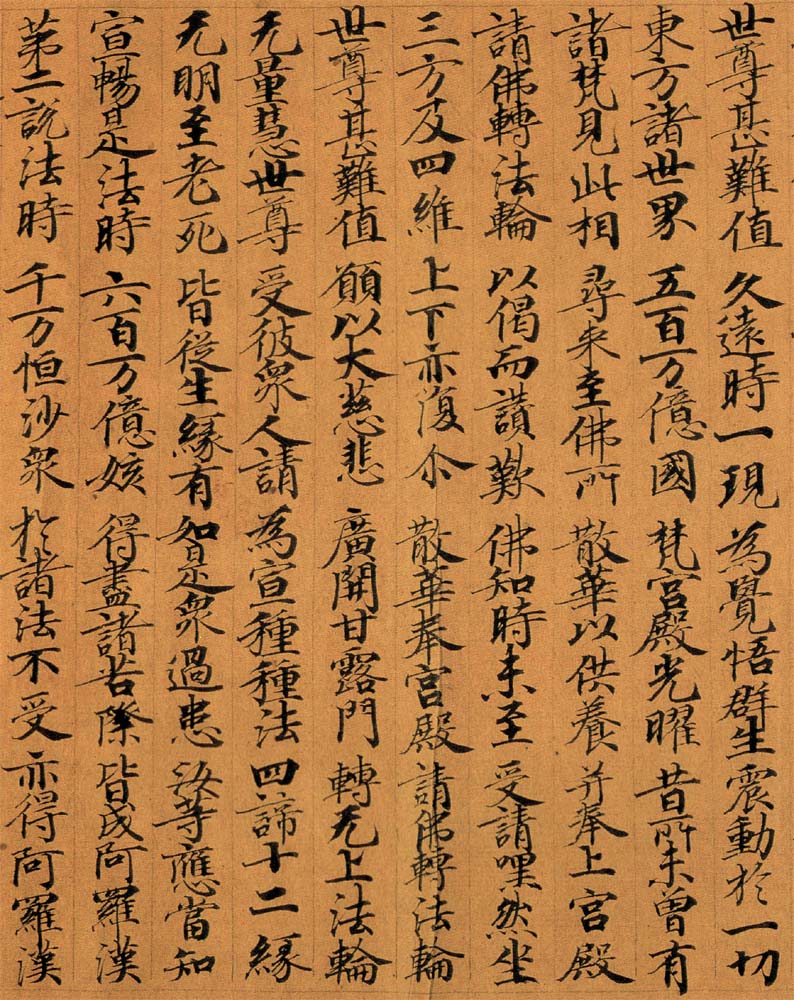 世尊甚難值 久遠時一現 為覺悟群生 震動於一切
東方諸世界 五百万億國 梵宮殿光曜 昔所未曾有
諸梵見此相 尋來至佛所 散華以供養 并奉上宮殿
請佛轉法輪 以偈而讚歎 佛知時未至 受請嘿然坐
三方及四維 上下亦復尒 散華奉宮殿 請佛轉法輪
世尊甚難值 願以大慈悲 廣開甘露門 轉无上法輪
无量慧世尊 受彼衆人請 為宣種種法 四諦十二緣
无明至老死 皆從生緣有 如是衆過患 汝等應當知
宣暢是法時 六百万億姟 得盡諸苦際 皆成阿羅漢
第二說法時 千万恒沙衆 於諸法不受 亦得阿羅漢